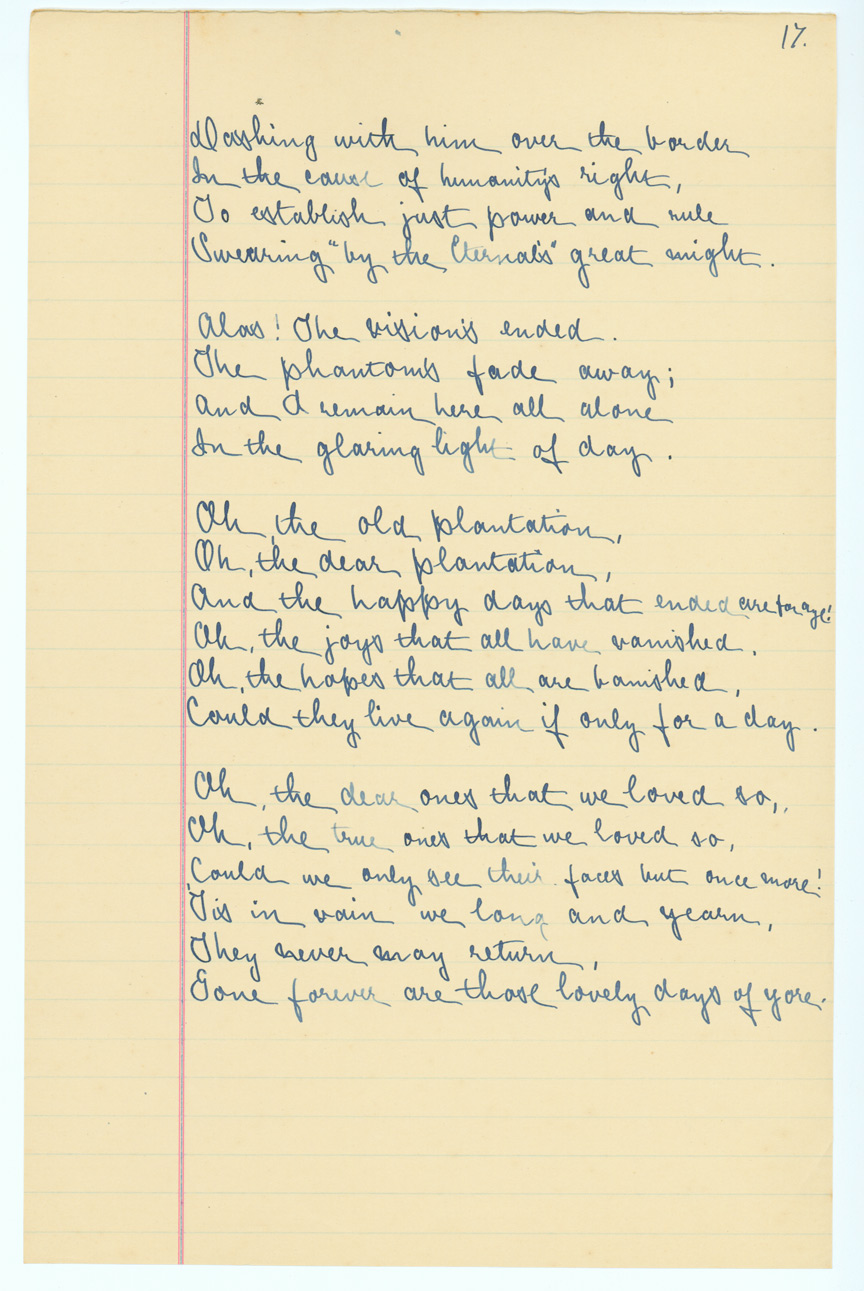 17.
Dashing with him over the border
In the cause of humanity's right,
To establish just power and rule
Swearing "by the Eternal's" great might.
Alas! The vision's ended.
The phantoms fade away;
And I remain here all alone
In the glaring light of day.
Oh, the old plantation,
Oh, the dear plantation,
And the happy days that ended are for aye!
Oh, the joys that all have vanished.
Oh, the hopes that all are banished,
Could they live again if only for a day.
Oh, the dear ones that we loved so,
Oh, the true ones that we loved so,
Could we only see their faces but once more!
'Tis in vain we long and yearn,
They never may return,
Gone forever are those lovely days of yore.